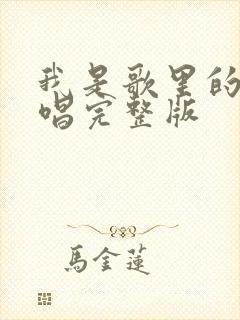 我是歌里的
唱完整版
馬金蓮